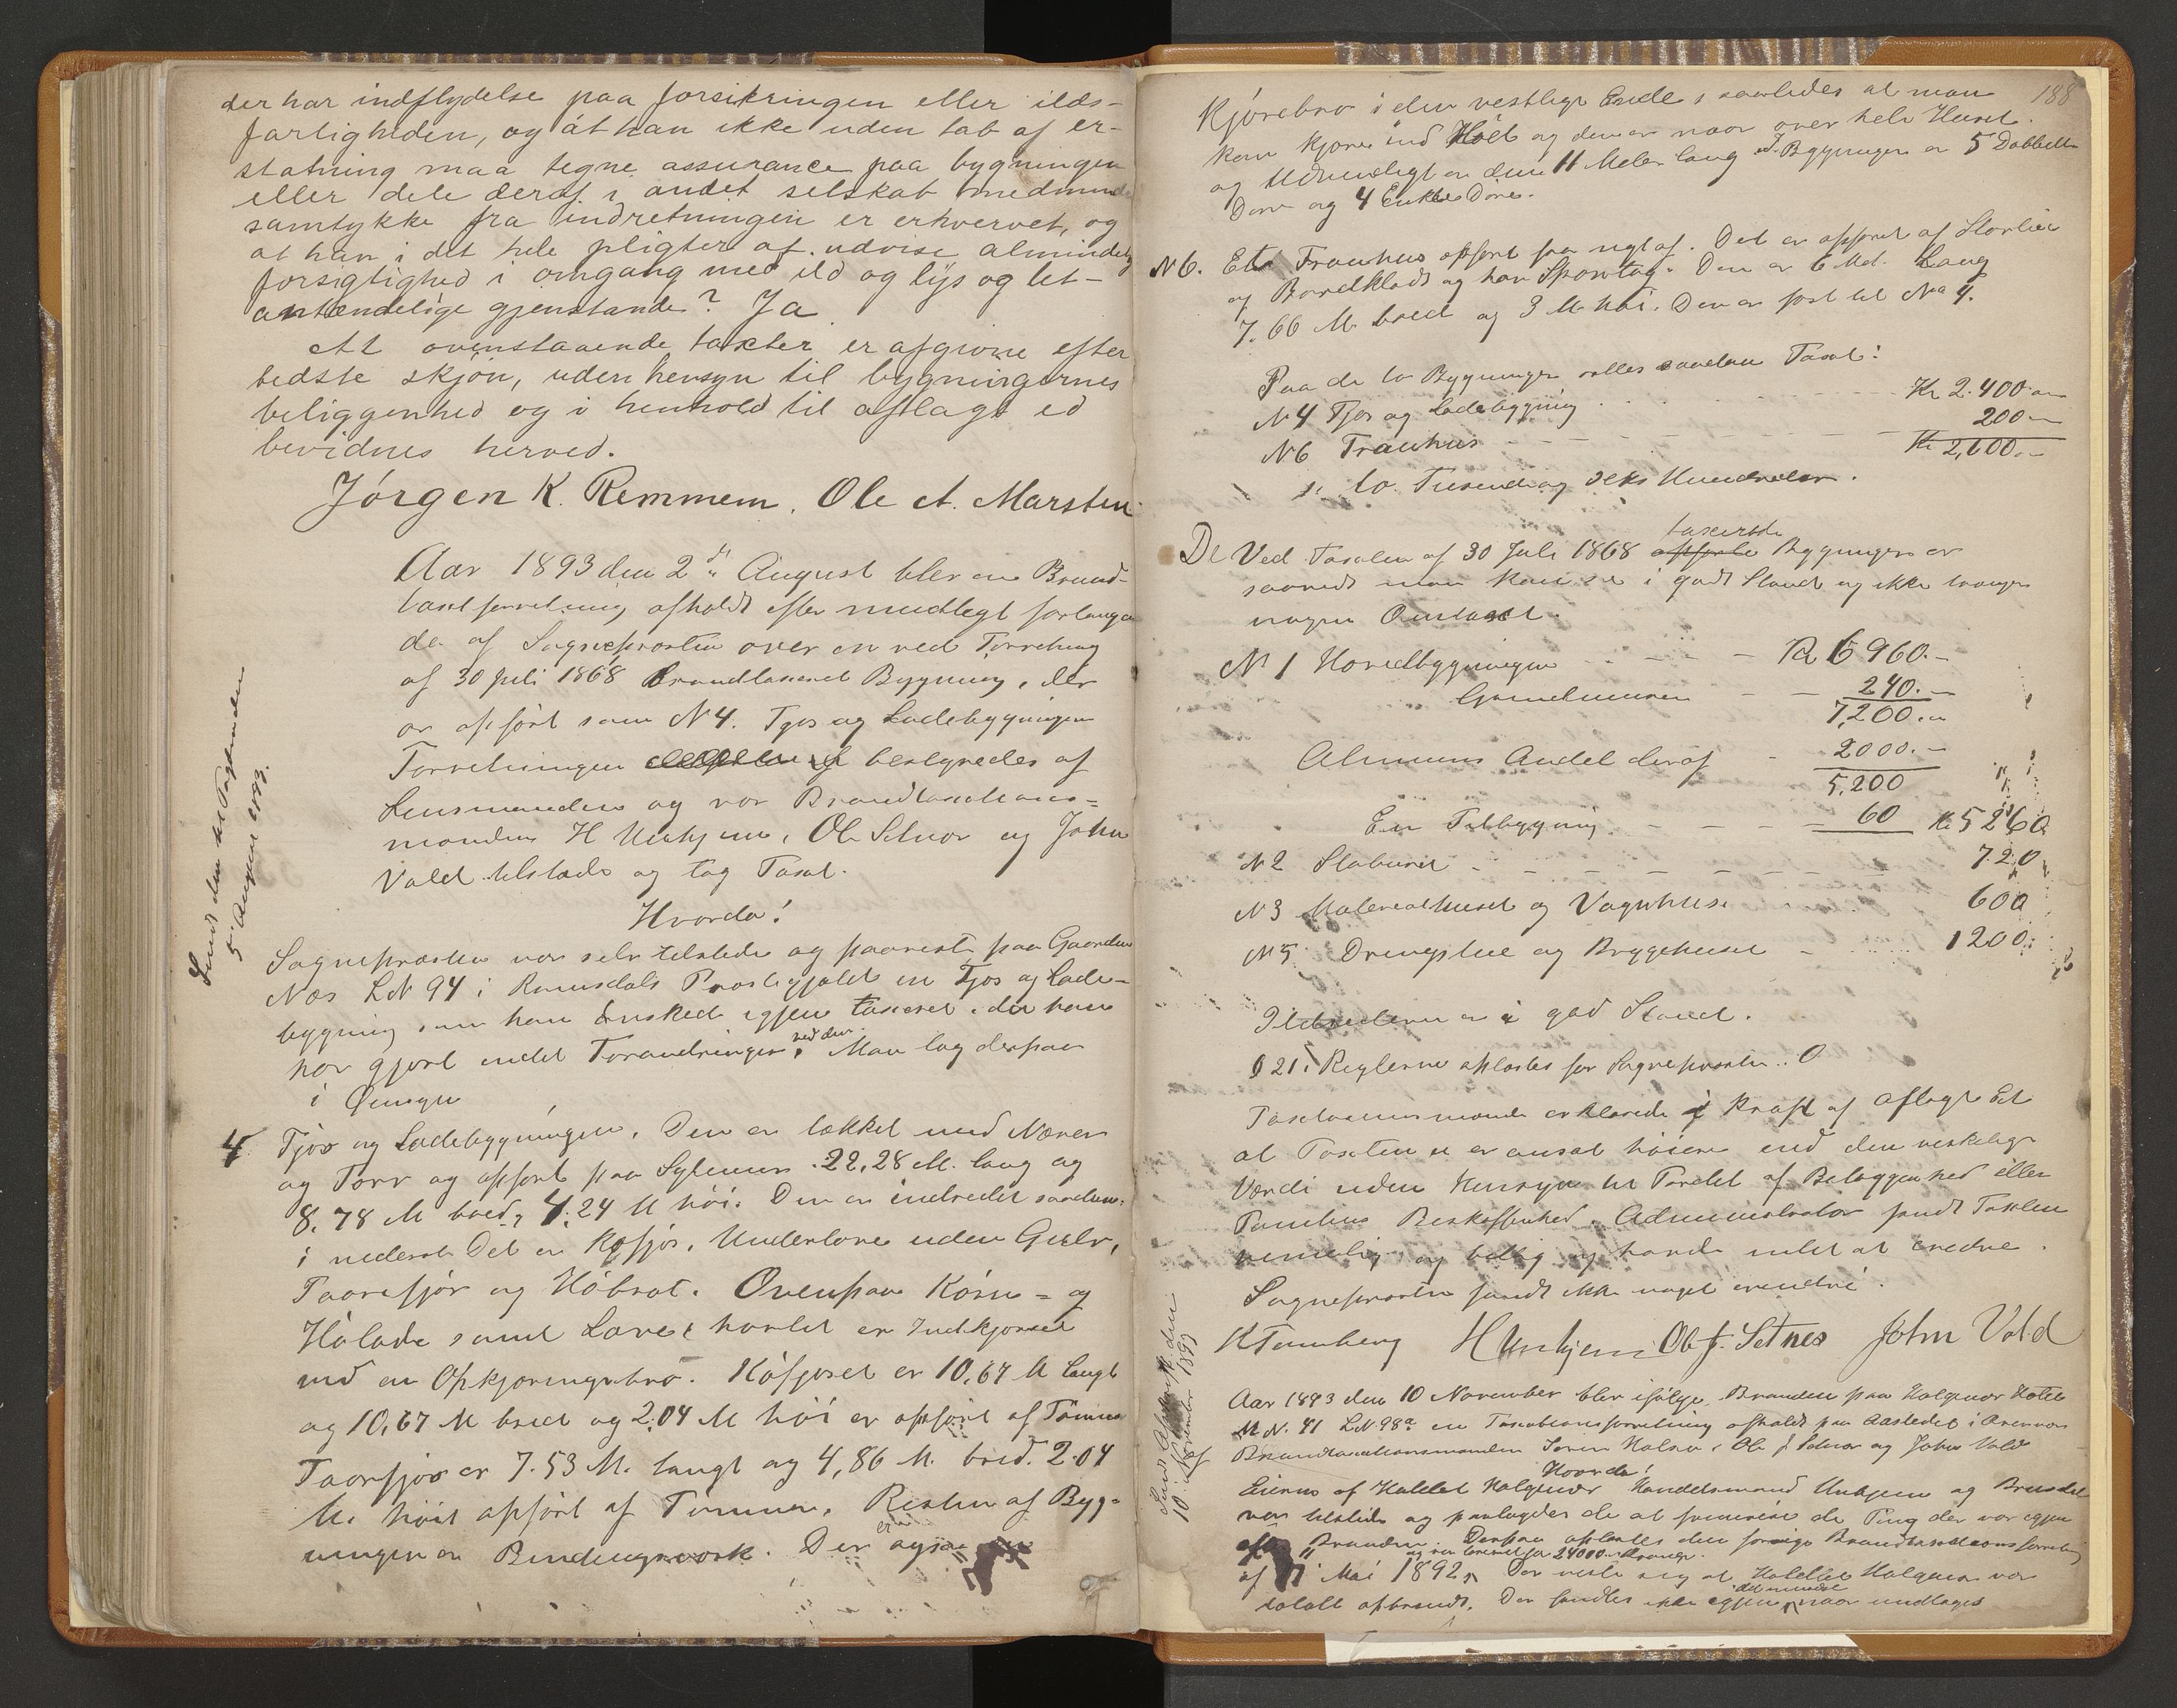 der har indflydelse paa forsikringen eller ilds-
farligheden, og at han ikke uden tab af er-
statning maa tegne assurance paa bygningen
eller dele deraf i andet selskab medmind
samtykke fra indretningen er erhvervet, og
at han i det hele pligter at udvise almindelig
forsigtighed i omgang med ild og lys og let-
antændelige gjenstande? Ja
At ovenstaaende taxter er afgivne efter
bedste skjøn, uden hensyn til bygningernes
beliggenhed og i henhold til aflagt ed
bevidnes herved.
Jørgen K. Remmem. Ole A. Marsten
Aar 1893 den 2de August blev en Brand-
taxtforretning afholdt efter mundtlegt forlangen
de af Sognepresten over en ved Forretning
af 30 Juli 1868 Brandtaxeret Bygning, der
er opført som N 4. Fjøs og Ladebygningen
Forretningen bestyredes af
Lensmanden og var Brandtaxtions-
mændene H Unhjem, Ole Setnes og John
Vold tilstede og tog Taxt.
Hvorda!
Sendt den til
5 August 1893.
Sognepresten var selv tilstede og paaviste paa Gaarden
Næs LN 94 i Romsdals Prestegjæld en Fjøs og Lade-
bygning som han ønskede igjen taxeret, da han
har gjort endel Forandringer ved den. Man tog derpaa
i Øiesyn
4 Fjøs og Ladebygningen. Den er tækket med Næver
og Torv og opført paa Sylmur. 22,28 M. lang og
8,78 M bred, 4,24 M høi. Den er indredet saaledes:
i nederst Det er Kofjøs, Underlave uden Gulv,
Faarefjøs og Høbrot. Ovenpaa Korn- og
Hølade samt Lave, hvortil er Indkjørsel
ved en Opkjøringsbro. Kofjøset er 10,67 M langt
og 10,67 M bred og 2.04 M høi er opført af Tømmer
Faarefjøs er 7.53 M. langt og 4,86 M. bred. 2.04
M. høit opført af Tømmer. Resten af Byg-
ningen er Bindingsværk. Der er ogsaa en
188
Kjørebro i den vestlige Ende, saaledes at man
kan kjøre ind Høet og den er naar over hele Huset.
og Udvendigt er den 11 Meter lang. I Bygningen er 5 Dobbelte
Døre og 4 Enkle Døre.
N 6. Et Trauhus opført fra nyt af. Det er opført af Stavlier
og Bordklædt og har Spontag. Den er 6 Met. Lang
7.66 M. bred og 3 M høi. Den er føst til No 4.
Paa de to Bygninger saadan Taxt:
N 4 Fjøs og Ladebygning Kr 2.400
N 6 Trauhus 200
Kr 2,600
to Tusinde og seks Hundrede.
De Ved Taxten af 30 Juli 1868 opførte taxerede Bygninger er
saavidt man kan se i godt Stand og ikke trænger
nogen Omtaxt.
N 1 Hovedbygningen Kr 6960.-
Grundmuren 240.-
7,200.-
Almuens Andel deraf 2000.-
5,200
En Tilbygning 60 Kr 5260
N 2 Stabburet 720
N 3 Materialhuset og Vognhuse 600
N 5 Drengstue og Bryggehuset 1200
Ildstederne er i god Stand.
§ 21. Reglerne oplæstes for Sognepresten.
Taxtionsmænde erklærede i Kraft af aflagt Ed
at Taxten ei er ansat høiere end den virkelige
Værdi uden Hensyn til Fordel af Beliggenhed eller
Tomtens Beskaffenhed. Administrator fandt Taxten
rimelig og billig og havde intet at erindre.
Sognepresten fandt ikke noget erindre.
H Unhjem Ole J. Setnes John Vold
10 November 1893
Aar 1893 den 10 November blev ifølge Branden paa Halgenæs Hotel
M N. 41 LN. 98a en Taxtionsforretning afholdt paa Aastedet i Overvær
Brandtaxtionsmænden Søren Halsa, Ole J Setnes og John Vold
Hvorda!
Eierne af Hotellet Halgenæs Handelsmand Unhjem og Brudedal
var tilstede og paalagdes de at fremvise de Ting der var igjen
efter Branden. Derpaa oplæstes den forrige Brandtaxtionsforretning
og var taxeret for 24000 Kroner.
af Mai 1892. Det viste sig at Hotellet Halgenæs var
totalt afbrændt. Der fandtes ikke igjen det mindste naar undtages